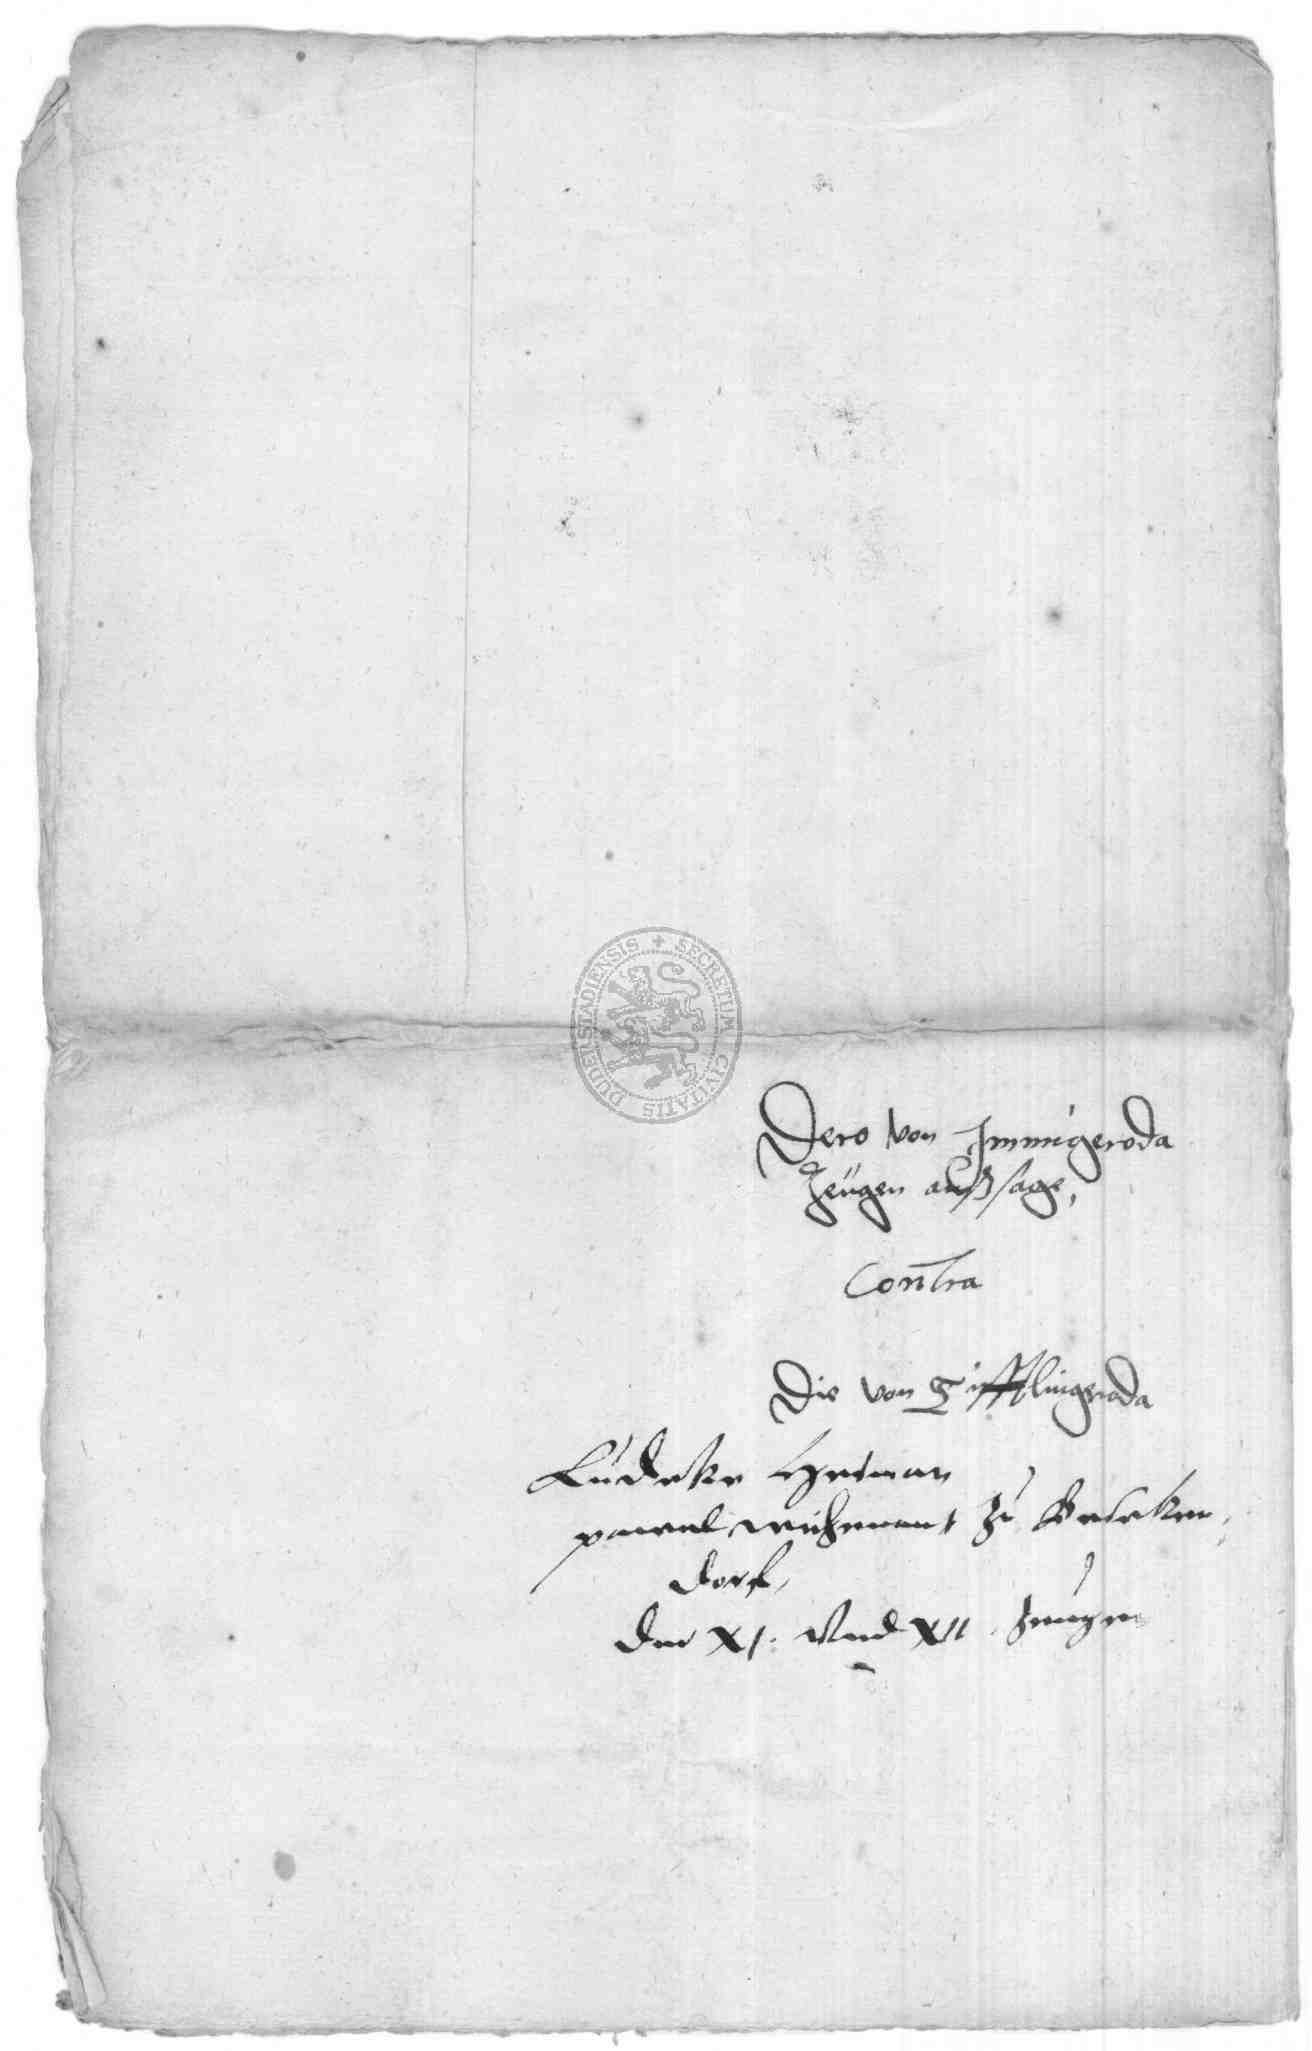 SECRETUM CIVITATIS DUDERSTADIENSIS
Dero von Immigeroda
Zeugen außsage,
Contra
Die von Tifftlingeroda
Ludeke Hetman
pawel zu
dorf,
der XI. Vnd XII. Zeugen